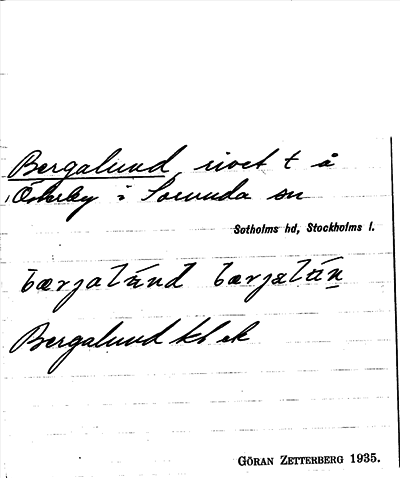 Bergalund, rivet t å
Österby i Sorunda sn
Sotholms hd, Stockholms l.
bærjalúnd bærjalún
Bergalund kb ek
GÖRAN ZETTERBERG 1935.